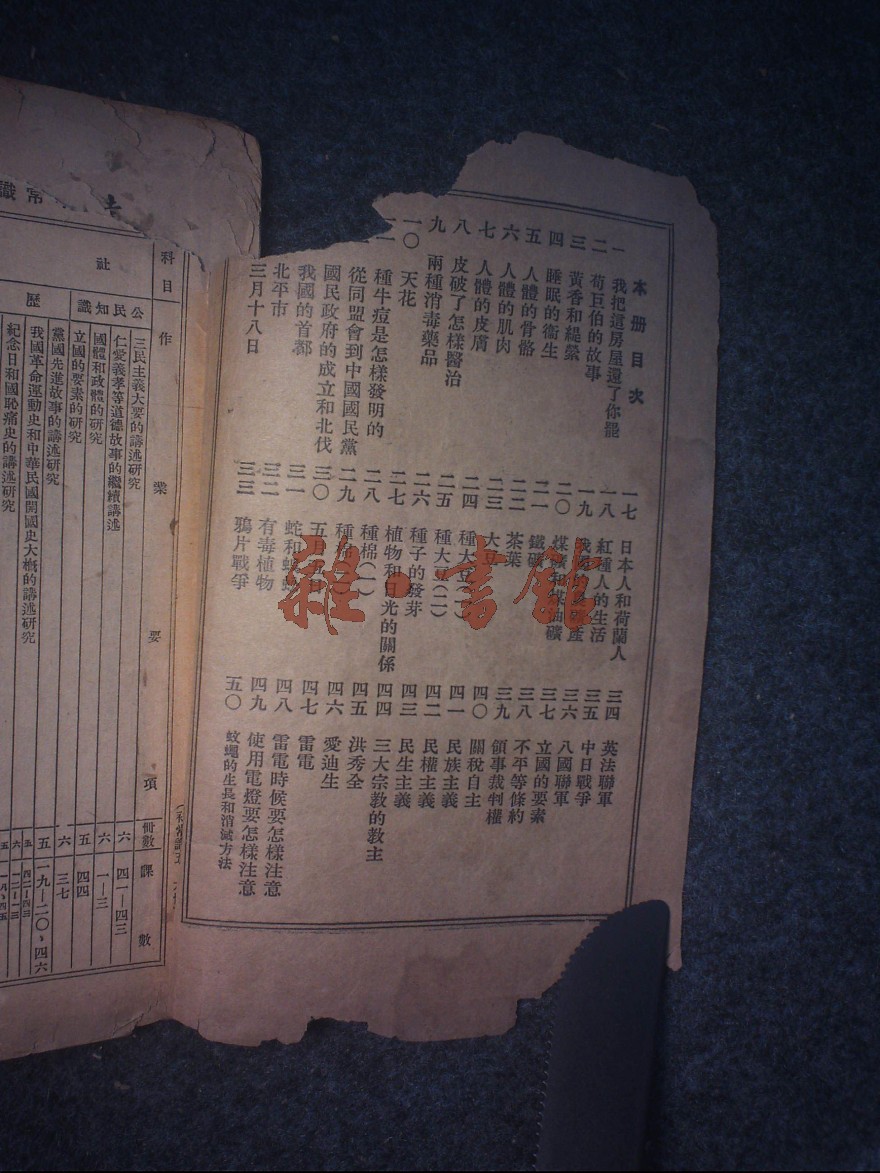 本册目次
一　我把這房屋還了你罷
二　荀巨伯的故事
三　黃香和緹縈
四　睡眠的衞生
五　人體的骨骼
六　人體的肌肉
七　人體的皮膚
八　皮破了怎樣醫治
九　兩種消毒藥品
一〇　天花
一一　種牛痘是怎樣發明的
從同盟會到中國國民黨
國民政府的成立和北伐
我國的首都
北平市
三月十八日
一七　日本人和荷蘭人
一八　紅種人的生活
一九　我國的礦產
二〇　煤礦和煤油礦
二一　鐵礦
二二　茶葉
二三　大豆
二四　種大豆(一)
二五　種大豆(二)
二六　種子的發芽
二七　植物和日光的關係
二八　種棉(一)
二九　種棉(二)
三〇　五月五日
三一　蛇和蜈蚣
三二　有毒植物
三三　鴉片戰爭
三四　英法聯軍
三五　中日戰爭
三六　八國聯軍
三七　立國的要素
三八　不平等條約
三九　領事裁判權
四〇　關稅自主
四一　民族主義
四二　民權主義
四三　民生主義
四四　三大宗教的教主
四五　洪秀全
四六　愛迪生
四七　雷電
四八　雷電時候要怎樣注意
四九　使用電燈要怎樣注意
五〇　蚊蠅的生長和消滅方法
常識
科目
作業要項
冊數
課數
社
公民知識
歷
三民主義大要的講述研究　六　四一—四三
仁愛義孝等道德故事的繼續講述　六　一—三
國體和政體的研究　五　四四
立國的要素的研究　六　三七
黨國先進故事的講述研究
我國革命運動史和中華民國開國史大概的講述研究　五　一九—二〇、四六
紀念日和國恥痛史的講述研究
雜·書館